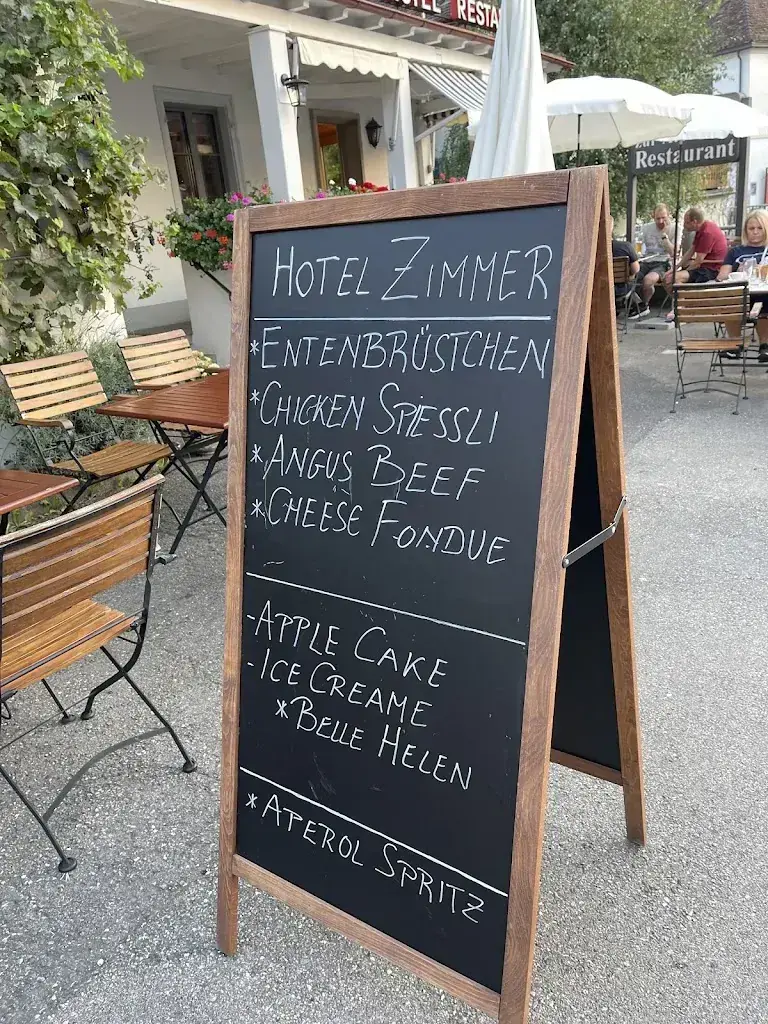 RESTA
Restaurant
HOTEL ZIMMER
*ENTENBRÜSTCHEN
*CHICKEN SPIESSLI
*ANGUS BEEF
*CHEESE FONDUE
-APPLE CAKE
-ICE CREAME
*BELLE HELEN
*APEROL SPRITZ